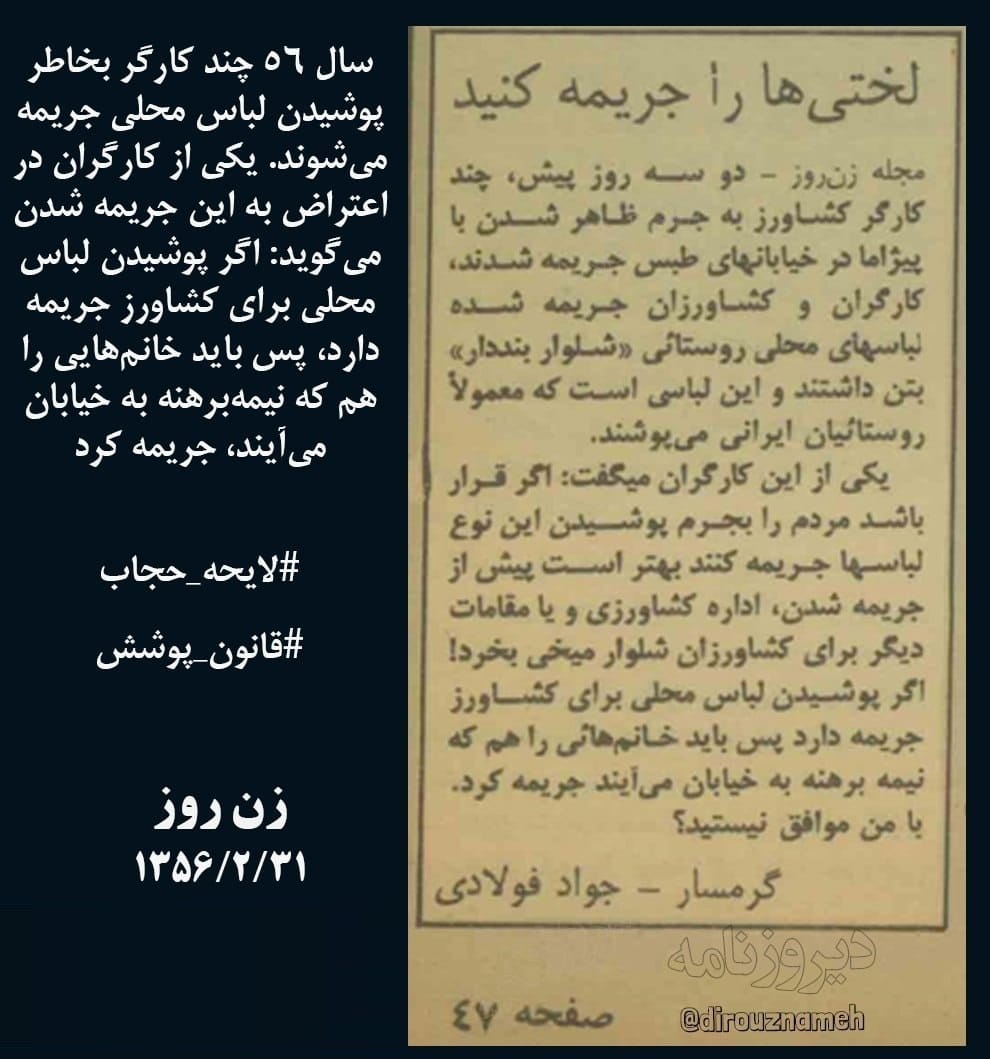 سال ٥٦ چند کارگر بخاطر
پوشیدن لباس محلی جریمه
می‌شوند. یکی از کارگران در
اعتراض به این جریمه شدن
می‌گوید: اگر پوشیدن لباس
محلی برای کشاورز جریمه
دارد، پس باید خانم‌هایی را
هم که نیمه‌برهنه به خیابان
می‌آیند، جریمه کرد
#لایحه_حجاب
#قانون_پوشش
زن روز
۱۳۵۶/۲/۳۱
لختی‌ها را جریمه کنید
مجله زن‌روز – دو سه روز پیش، چند
کارگر کشاورز به جرم ظاهر شدن با
پیژاما در خیابانهای طبس جریمه شدند،
کارگران و کشاورزان جریمه شده
لباسهای محلی روستائی «شلوار بنددار»
بتن داشتند و این لباسی است که معمولاً
روستائیان ایرانی می‌پوشند.
یکی از این کارگران میگفت: اگر قرار
باشد مردم را بجرم پوشیدن این نوع
لباسها جریمه کنند بهتر است پیش از
جریمه شدن، اداره کشاورزی و یا مقامات
دیگر برای کشاورزان شلوار میخی بخرد!
اگر پوشیدن لباس محلی برای کشاورز
جریمه دارد پس باید خانم‌هائی را هم که
نیمه برهنه به خیابان می‌آیند جریمه کرد.
با من موافق نیستید؟
گرمسار – جواد فولادی
دیروزنامه
@dirouznameh
صفحه ۴۷